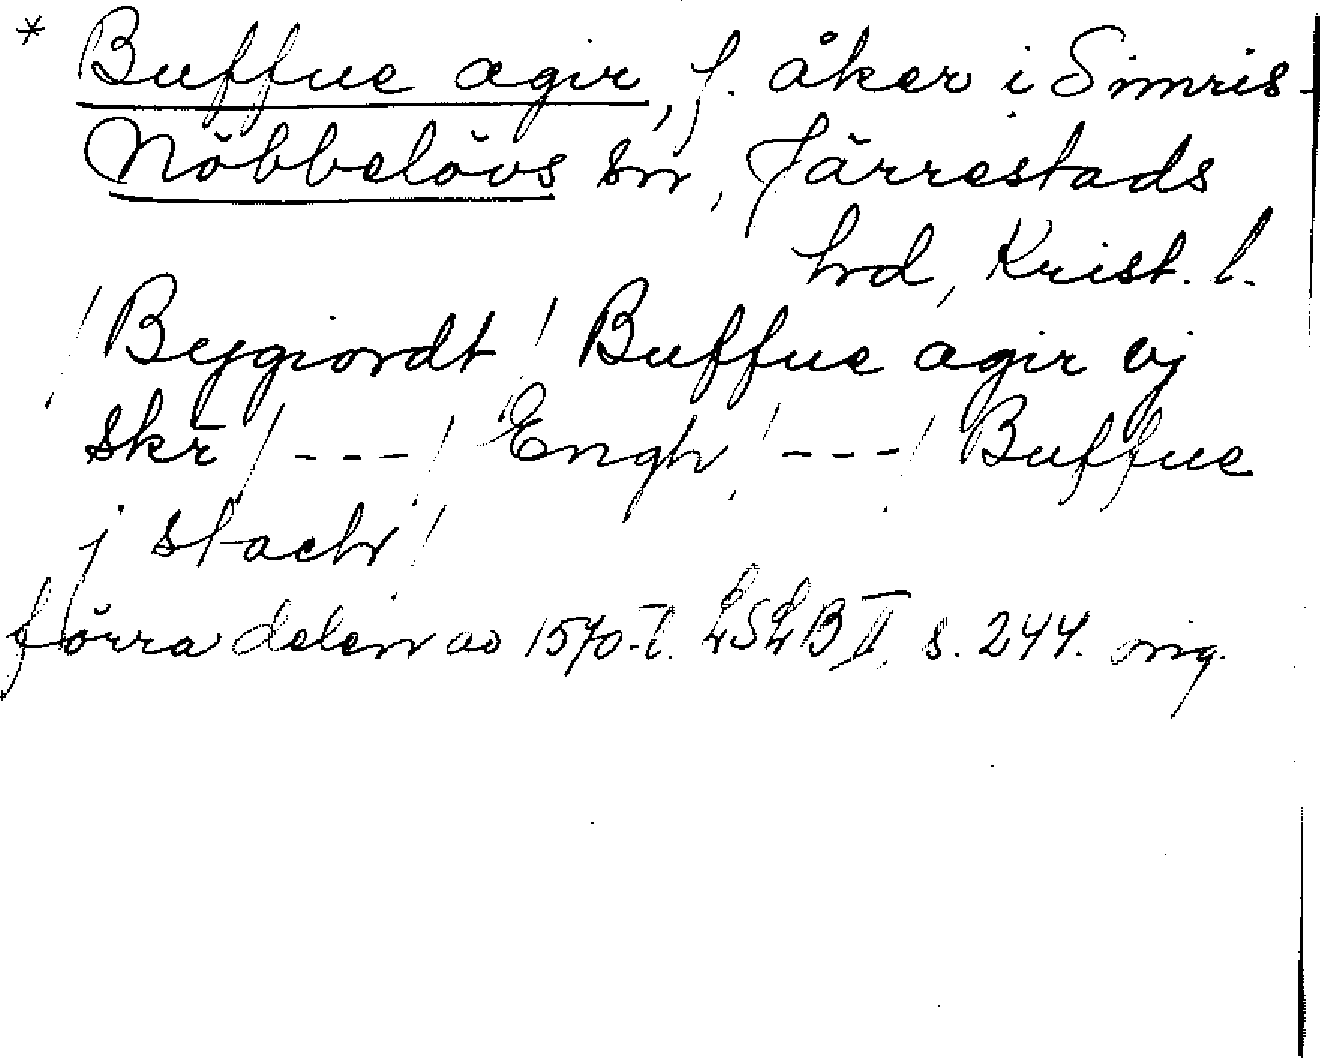 * Buffue agir, f. åker i Simris-
Nöbbelövs sn, Järrestads
hrd, Krist. l.
/ Bygiordt / Buffue agir vj
skr / --- / Engh / --- / Buffue
j stach /
förra delen av 1570-t. LSLB II s. 244. orig.